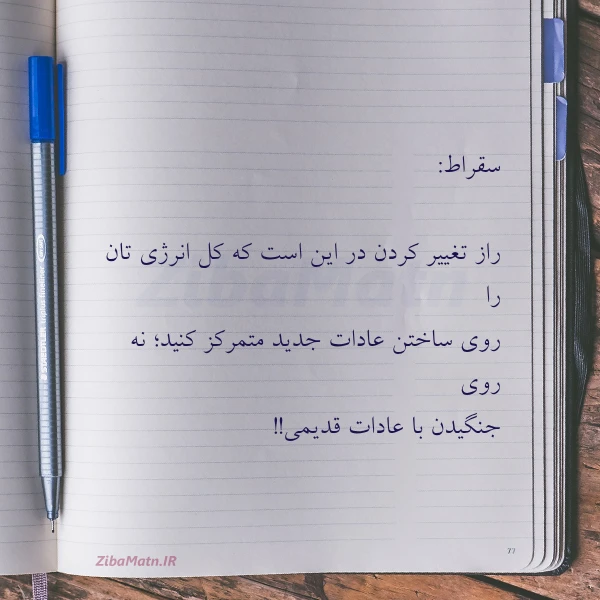 سقراط:
راز تغییر کردن در این است که کل انرژی تان
را
روی ساختن عادات جدید متمرکز کنید؛ نه
روی
جنگیدن با عادات قدیمی!!
77
ZibaMatn.IR